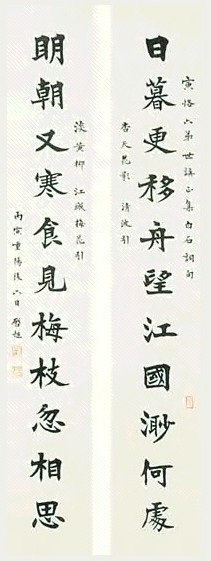 寅恪六弟世講正集白石詞句
日暮更移舟望江國渺何處
杏天花影 清波引
淡黃柳 江城梅花引
明朝又寒食見梅枝忽相思
丙寅重陽後六日啟超